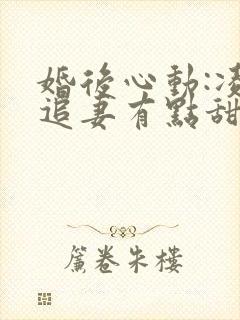 婚後心動:凌
追妻有點甜
簾卷朱樓